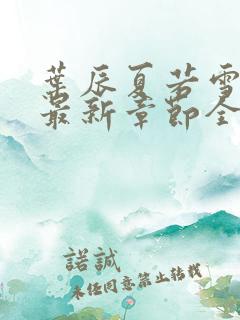 葉辰夏若雪
最新章節全
諾誠
未經同意禁止轉載